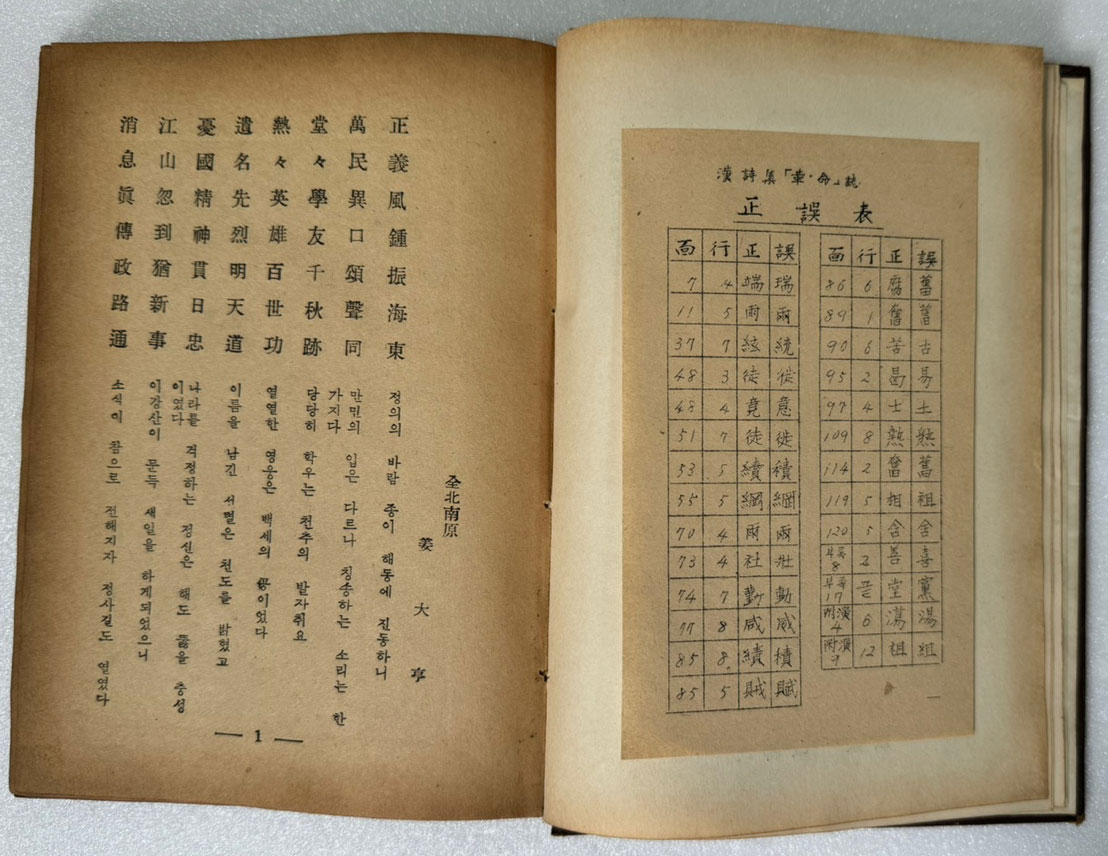 漢詩集「革·命」誌
正誤表
面 行 正 誤
7 4 端 瑞
11 5 雨 兩
37 7 絃 統
48 3 徒 從
48 4 竟 意
51 7 徒 徙
53 5 續 積
55 5 綱 網
70 4 雨 兩
73 4 社 壯
74 7 勤 動
77 8 咸 威
85 8 績 積
85 5 賊 賦
面 行 正 誤
86 6 舊
89 1 奮 舊
90 6 苦 古
95 2 曷 易
97 4 士 土
109 8 熱
114 2 奮 舊
119 5 相 祖
120 5 舍
부록 8 2 善 喜
부록 17 끝 堂 黨
附演 4 6 蕩 湯
附演 9 12 祖 組
全北南原
姜大亨
正義風鍾振海東
정의의 바람 종이 해동에 진동하니
萬民異口頌聲同
만민의 입은 다르나 칭송하는 소리는 한
가지다
堂々學友千秋跡
당당히 학우는 천추의 발자취요
熱々英雄百世功
열열한 영웅은 백세의 공이었다
遺名先烈明天道
이름을 남긴 서열은 천도를 밝혔고
憂國精神貫日忠
나라를 걱정하는 정신은 해도 뚫을 충성
이였다
江山忽到猶新事
이강산이 문득 새일을 하게되었으니
消息眞傳政路通
소식이 참으로 전해지자 정사길도 열렸다
— 1 —